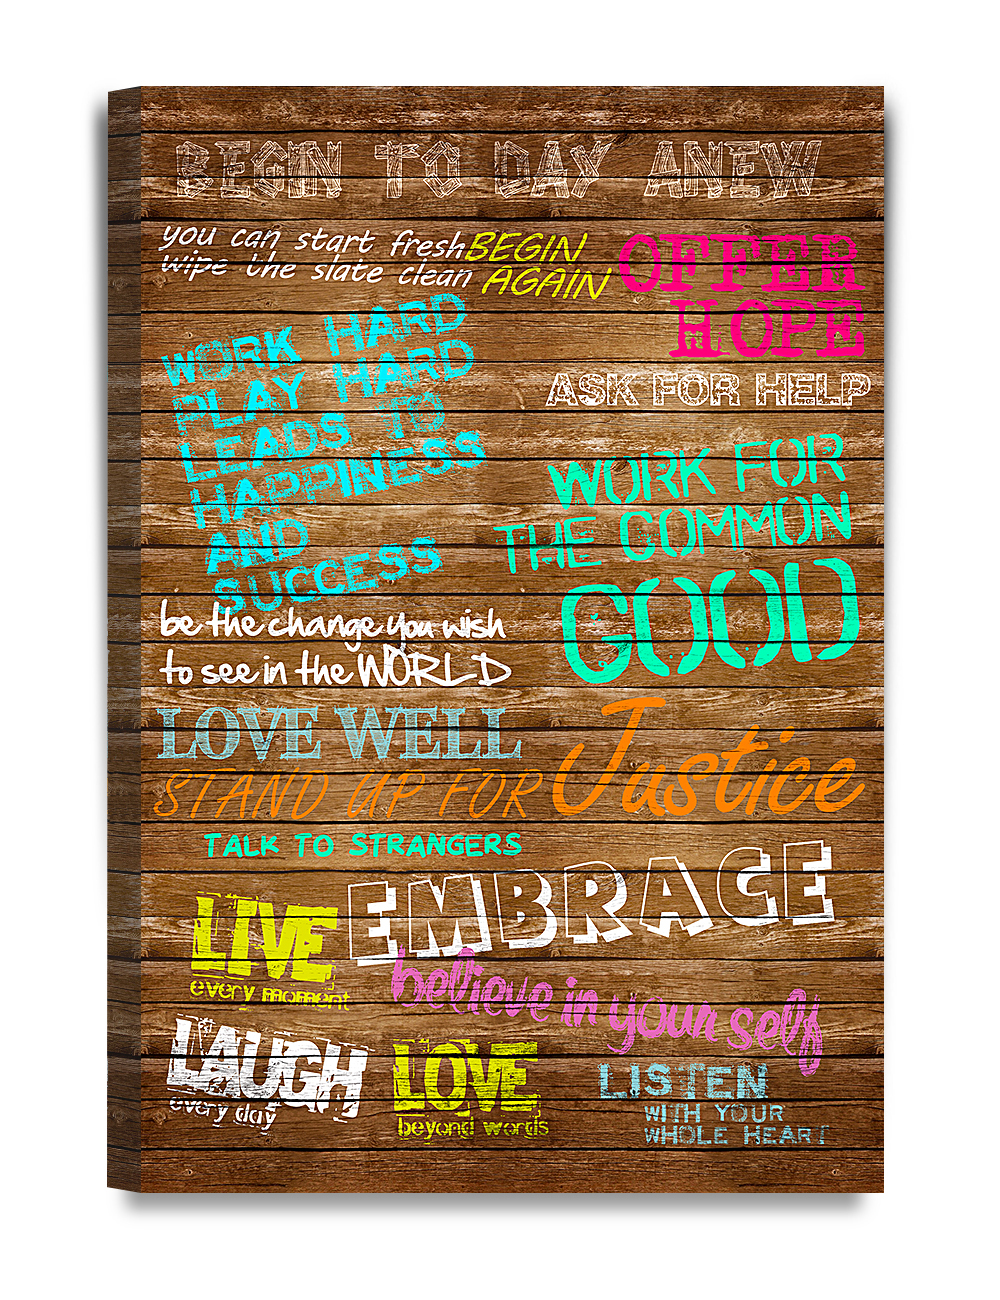 BEGIN TO DAY ANEW
you can start fresh BEGIN
wipe the slate clean AGAIN
OFFER
HOPE
ASK FOR HELP
WORK HARD
PLAY HARD
LEADS TO
HAPPINESS
AND
SUCCESS
WORK FOR
THE COMMON
GOOD
be the change you wish
to see in the WORLD
LOVE WELL
STAND UP FOR Justice
TALK TO STRANGERS
EMBRACE
LIVE
every moment
believe in your self
LAUGH
every day
LOVE
beyond words
LISTEN
WITH YOUR
WHOLE HEART